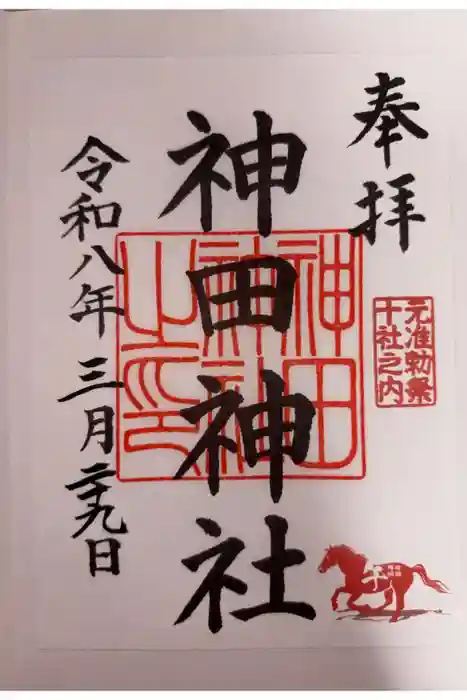 奉拝
元准勅祭
十社之内
午
神田神社
神田
神社
之印
令和八年 三月 二十九日